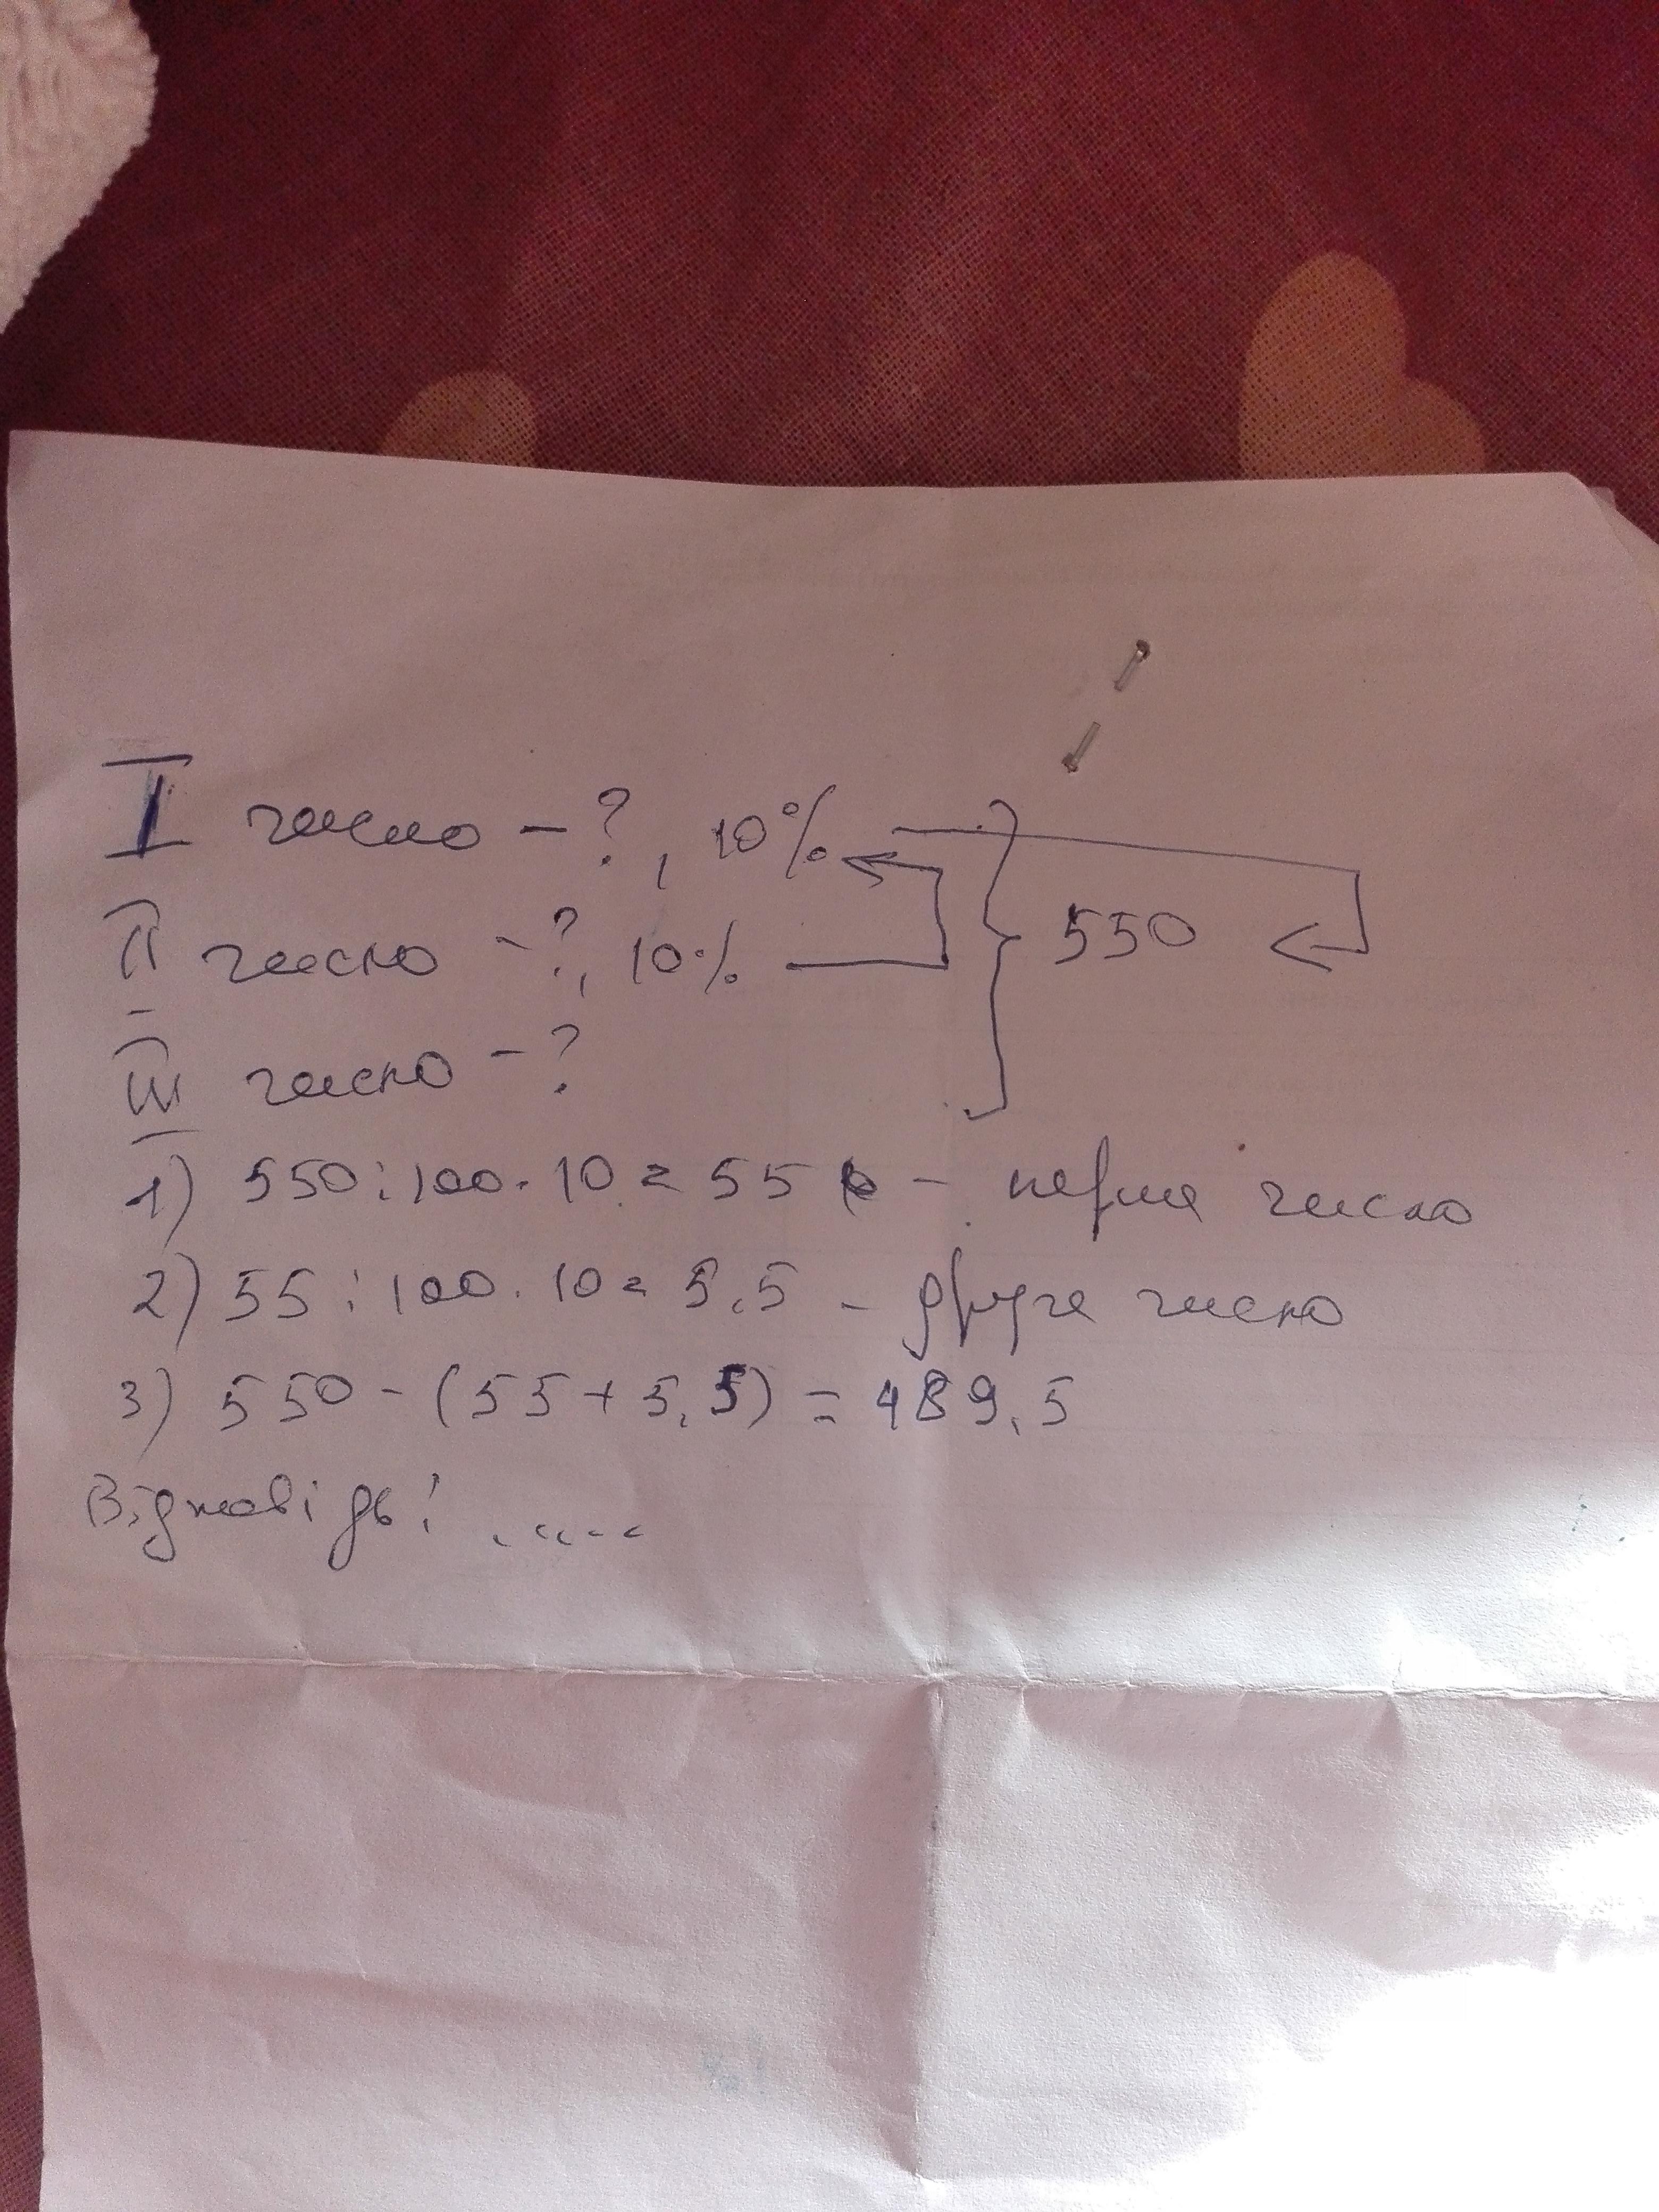 I число - ?, 10%
II число - ?, 10%
III число - ?
550
1) 550 : 100 · 10 = 55 - перше число
2) 55 : 100 · 10 = 5,5 - друге число
3) 550 - (55 + 5,5) = 489,5
Відповідь: ......